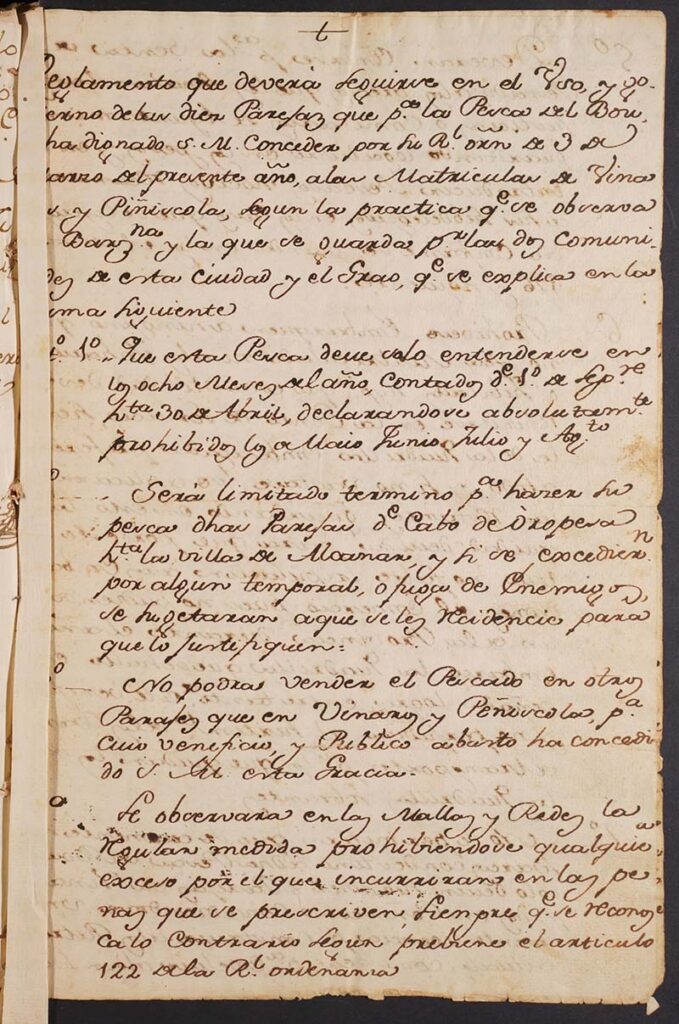 t
Reglamento que deverá seguirse en el Uso, y go-
erno delas diez Parejas que p.ª la Pesca del Bou,
ha dignado S. M. Conceder por su R.l orñ de 3 de
arzo del presente año, alas Matriculas de Vina
s y Piñiscola, segun la practica q.e se observa
Barz.na y la que se guarda p.r las dos comuni-
des de esta Ciudad y el Grao, q.e se explica en la
ma siguiente
1.º Que esta Pesca deve solo entenderse en
los ocho Meses del año, contados d.e 1.º de Sep.re
h.ta 30 de Abril, declarandose absolutam.te
prohibidos los de Maio Junio Julio y Ag.to
Será limitado termino p.ª hazer su
pesca dhas Parejas d.e Cabo de Oropesa
h.ta la villa de Alcanar, y si se excedier.n
por algun temporal, o fuga de Enemigos,
se sugetaran a que se les Residencie para
que lo Justifiquen.
No podra vender el Pescado en otros
Parajes que en Vinaros y Peñiscola, p.ª
cuio veneficio, y Publico abasto ha concedi-
do S. M. esta Gracia.
Se observara en las Mallas y Redes la
Regular medida prohibiendose qualquie.ª
exceso por el que incurriran en las pe-
nas que se prescriven, siempre q.e se reconoz
ca lo Contrario segun prebiene el articulo
122 de la R.l ordenanza